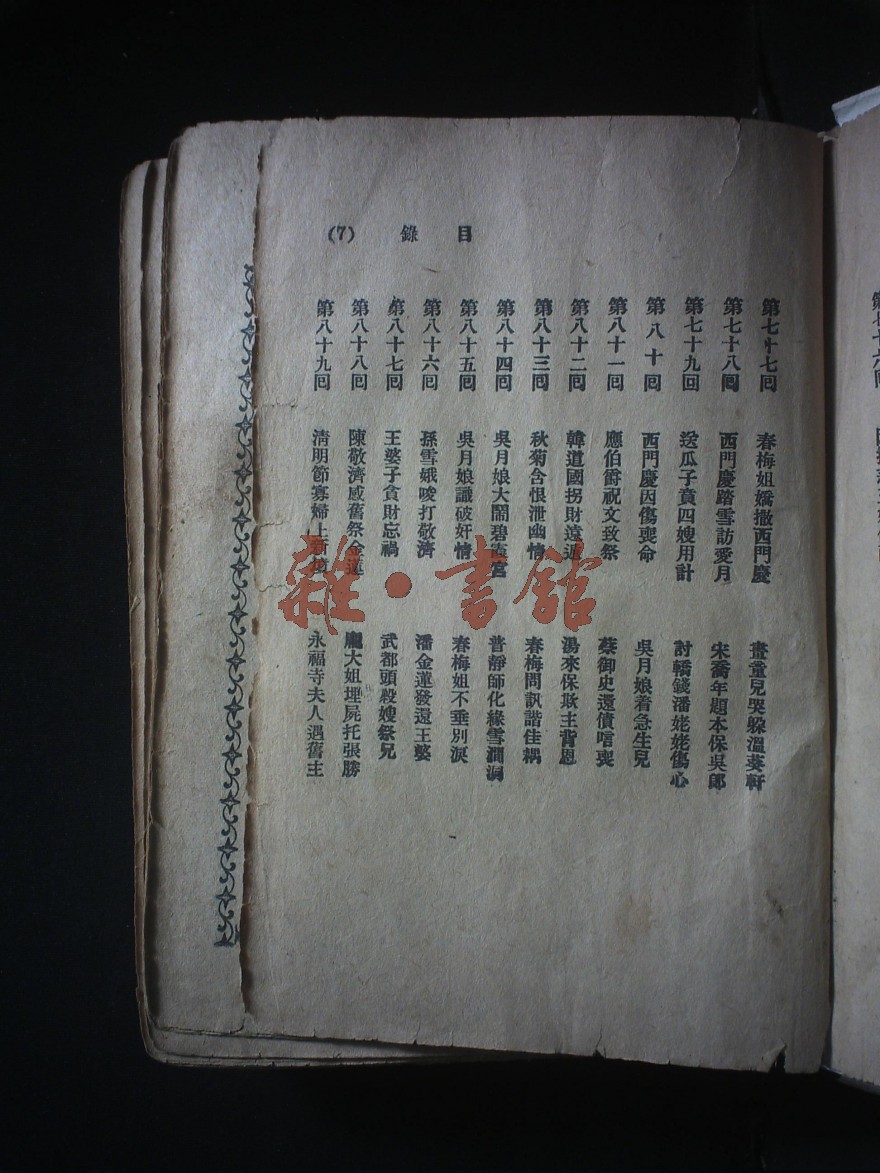 目 錄 (7)
第七十七回 春梅姐嬌撒西門慶 畫童兒哭躲溫葵軒
第七十八回 西門慶踏雪訪愛月 宋喬年題本保吳郎
第七十九回 送瓜子賁四嫂用計 討轎錢潘姥姥傷心
第八十回 西門慶因傷喪命 吳月娘着急生兒
第八十一回 應伯爵祝文致祭 蔡御史還債唁喪
第八十二回 韓道國拐財遠遁 湯來保欺主背恩
第八十三回 秋菊含恨泄幽情 春梅問訊諧佳耦
第八十四回 吳月娘大鬧碧霞宮 普靜師化緣雪澗洞
第八十五回 吳月娘識破奸情 春梅姐不垂別淚
第八十六回 孫雪娥唆打敬濟 潘金蓮發還王婆
第八十七回 王婆子貪財忘禍 武都頭殺嫂祭兄
第八十八回 陳敬濟感舊祭金蓮 龐大姐埋屍托張勝
第八十九回 清明節寡婦上新墳 永福寺夫人遇舊主
雜·書館
第七十六回